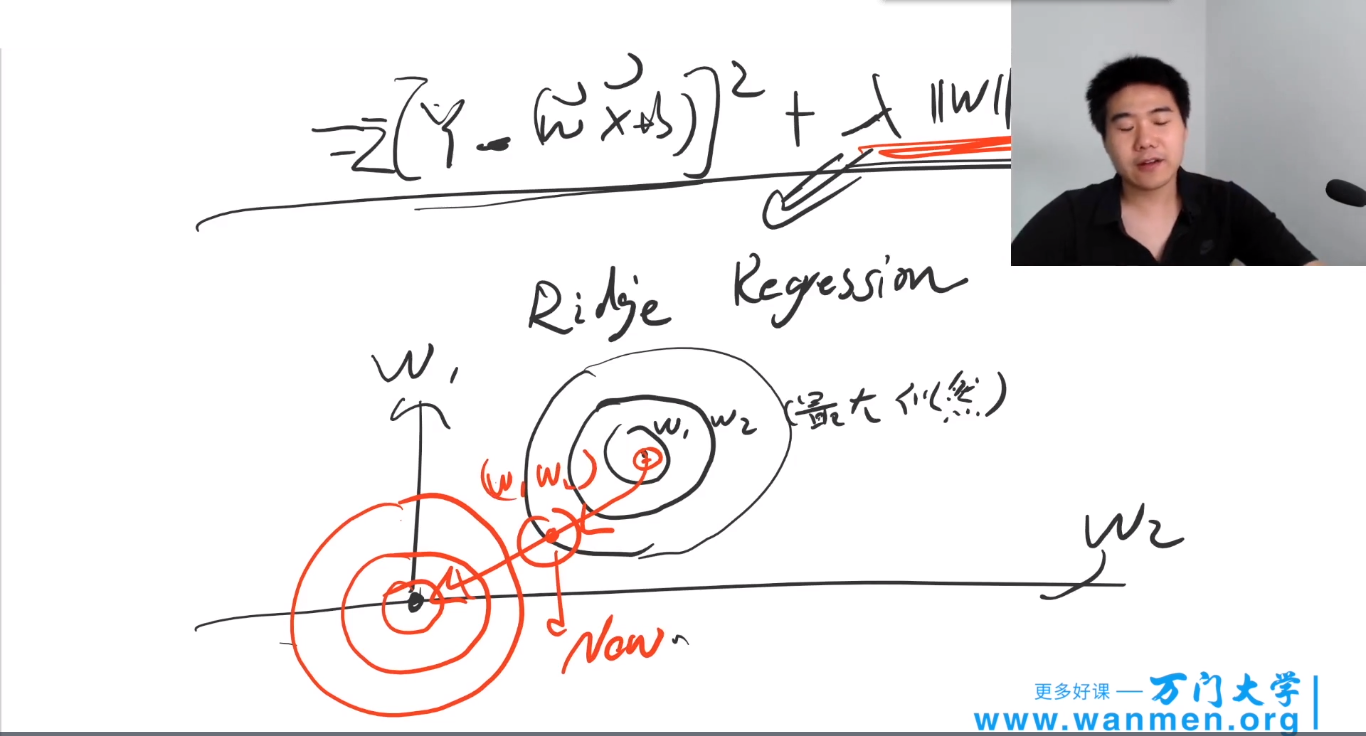 =Σ[Y - (w̃ x+b)]² + λ ||w||
Ridge Regression
W₁
w₁ w₂ (最大似然)
(w₁ w₂)
W₂
New
更多好课 — 万门大学
www.wanmen.org